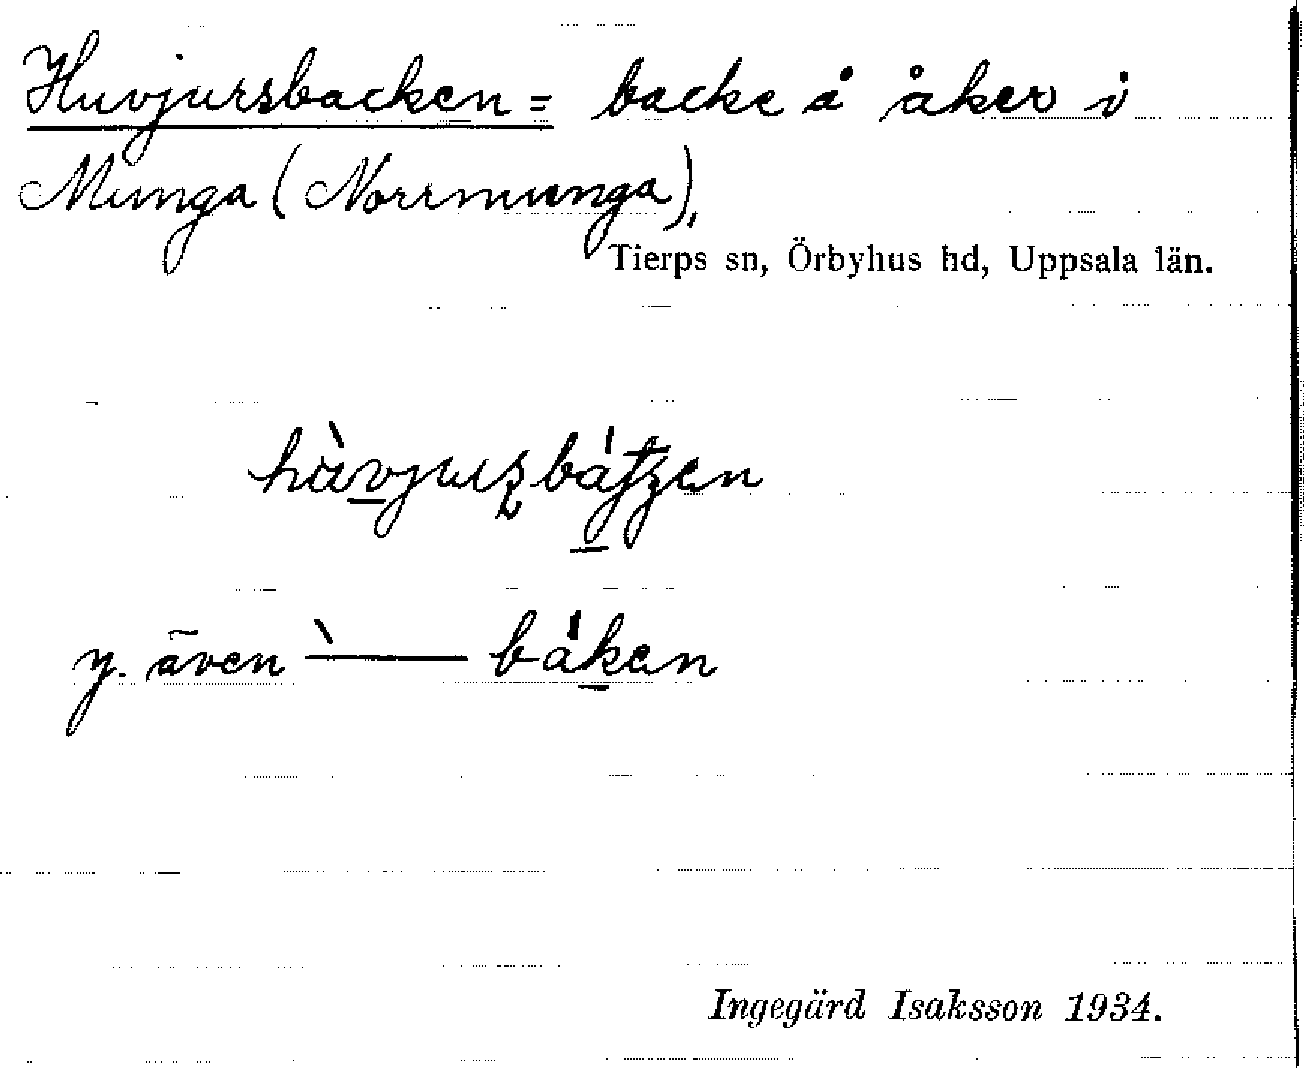 Huvjursbacken = backe å åker i
Munga (Norrmunga),
Tierps sn, Örbyhus hd, Uppsala län.
y. även ` — båken
Ingegärd Isaksson 1934.